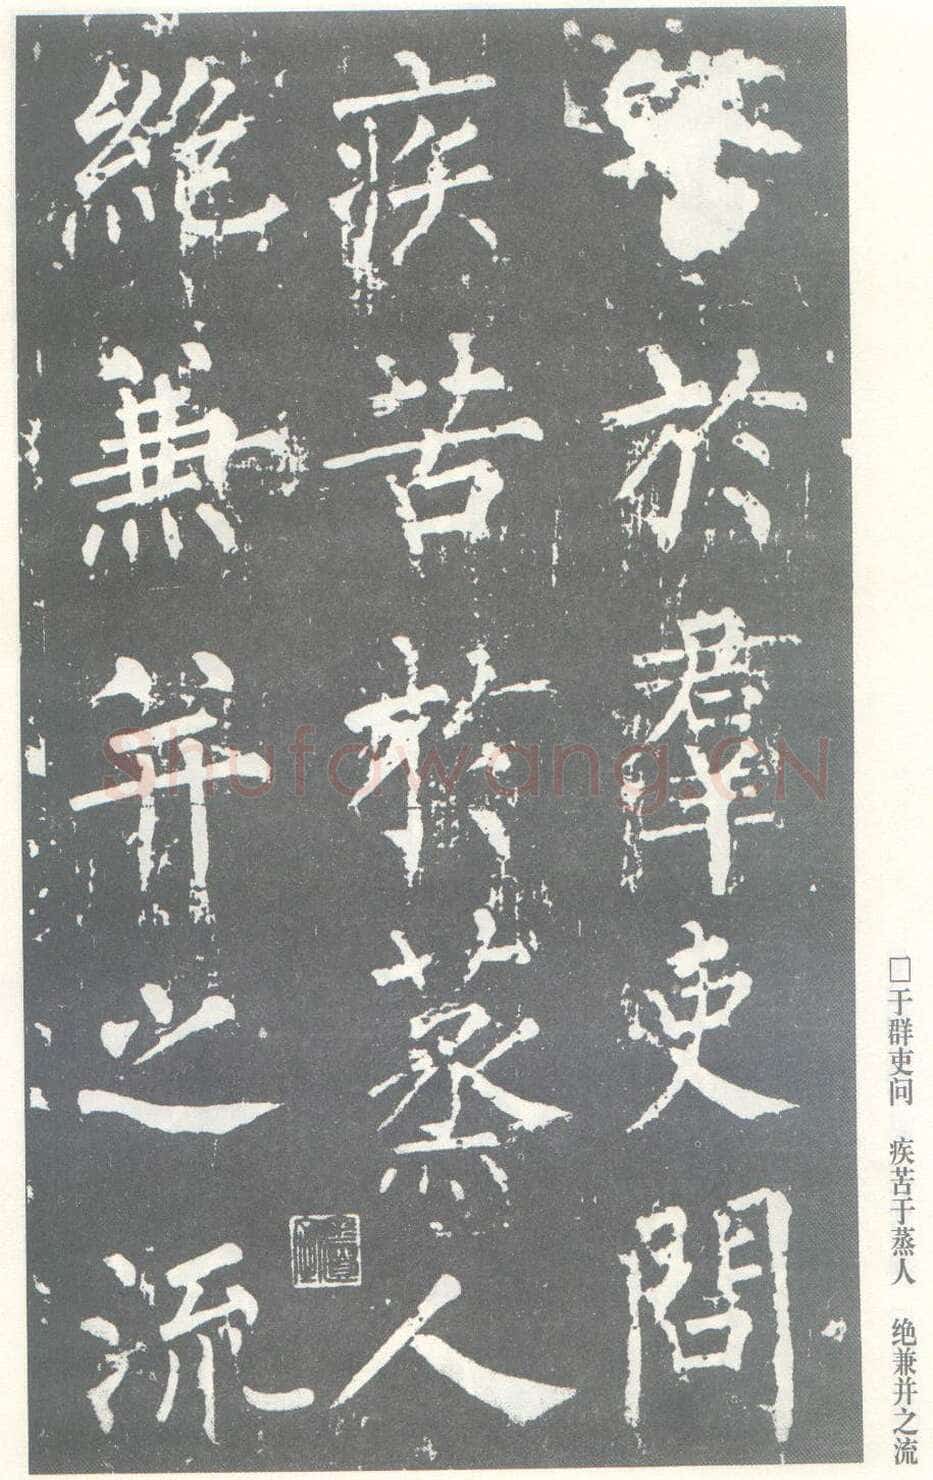 於羣吏問
疾苦於蒸人
絕兼并之流
□于群吏问 疾苦于蒸人 绝兼并之流
Shufawang.CN